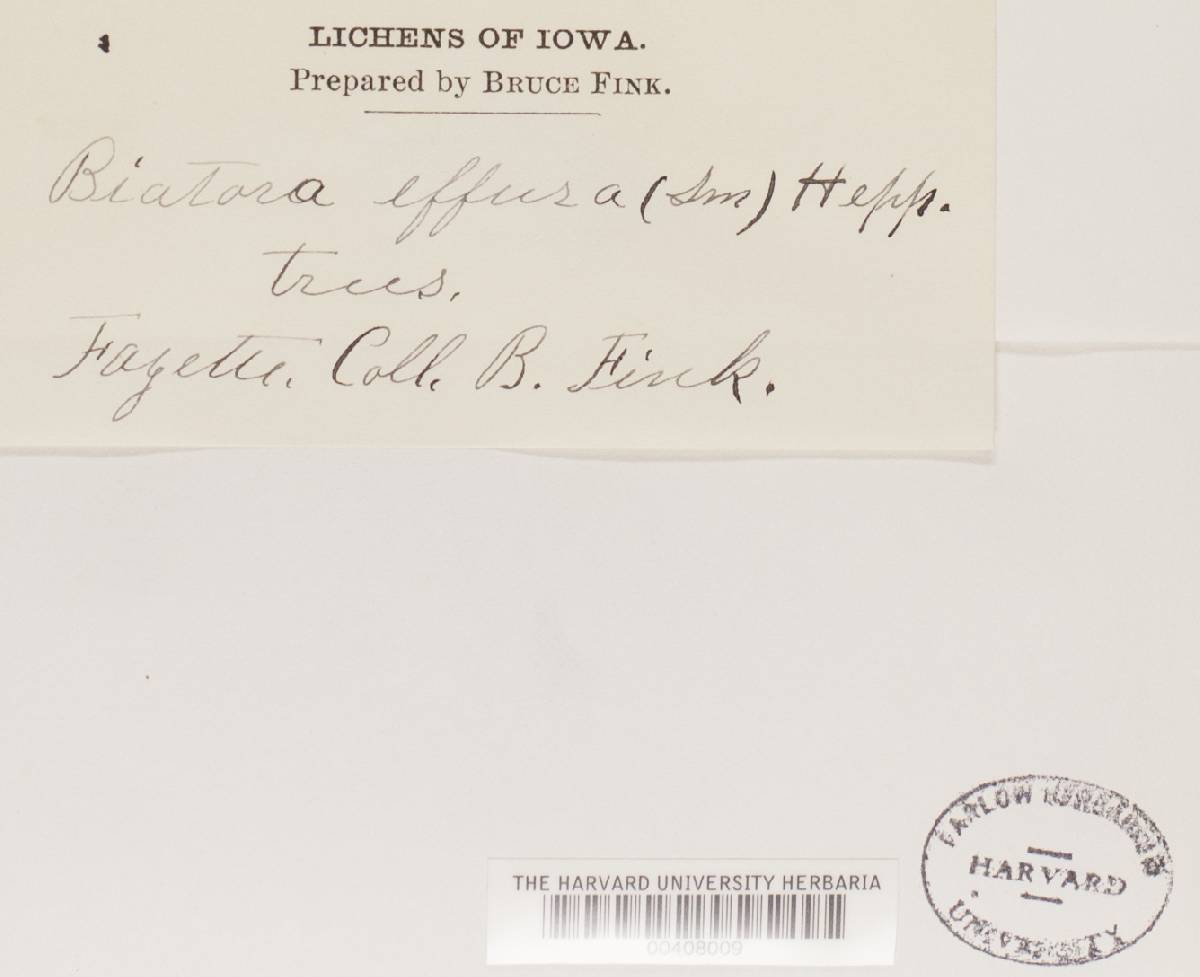 LICHENS OF IOWA.
Prepared by BRUCE FINK.
Biatora effusa (Sm) Hepp.
trees.
Fayette. Coll. B. Fink.
THE HARVARD UNIVERSITY HERBARIA
00408009
FARLOW HERBARIUM
HARVARD
UNIVERSITY